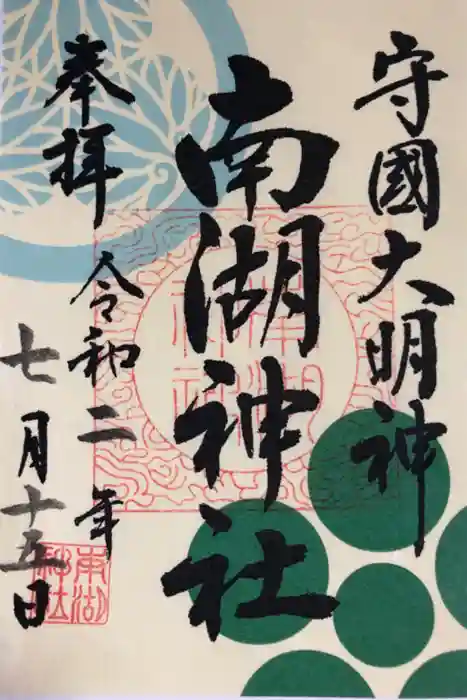 守國大明神
南湖神社
奉拝
令和二年
七月十五日
南湖神社
南湖神社